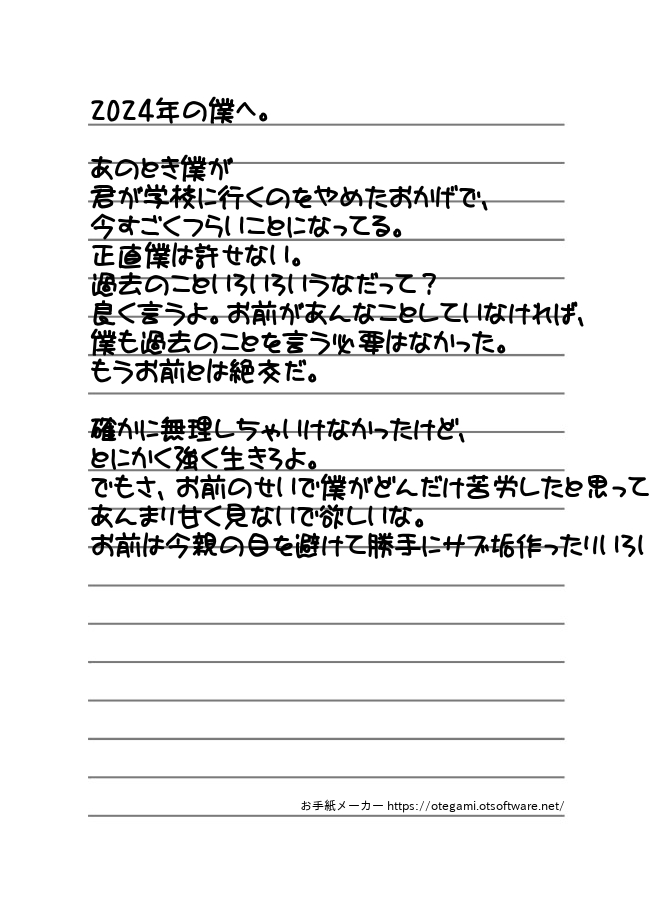 2024年の僕へ。
あのとき僕が
君が学校に行くのをやめたおかげで、
今すごくつらいことになってる。
正直僕は許せない。
過去のこといろいろいうなだって？
良く言うよ。お前があんなことしていなければ、
僕も過去のことを言う必要はなかった。
もうお前とは絶交だ。
確かに無理しちゃいけなかったけど、
とにかく強く生きろよ。
でもさ、お前のせいで僕がどんだけ苦労したと思って
あんまり甘く見ないで欲しいな。
お前は今親の目を避けて勝手にサブ垢作ったりいろい
お手紙メーカー https://otegami.otsoftware.net/